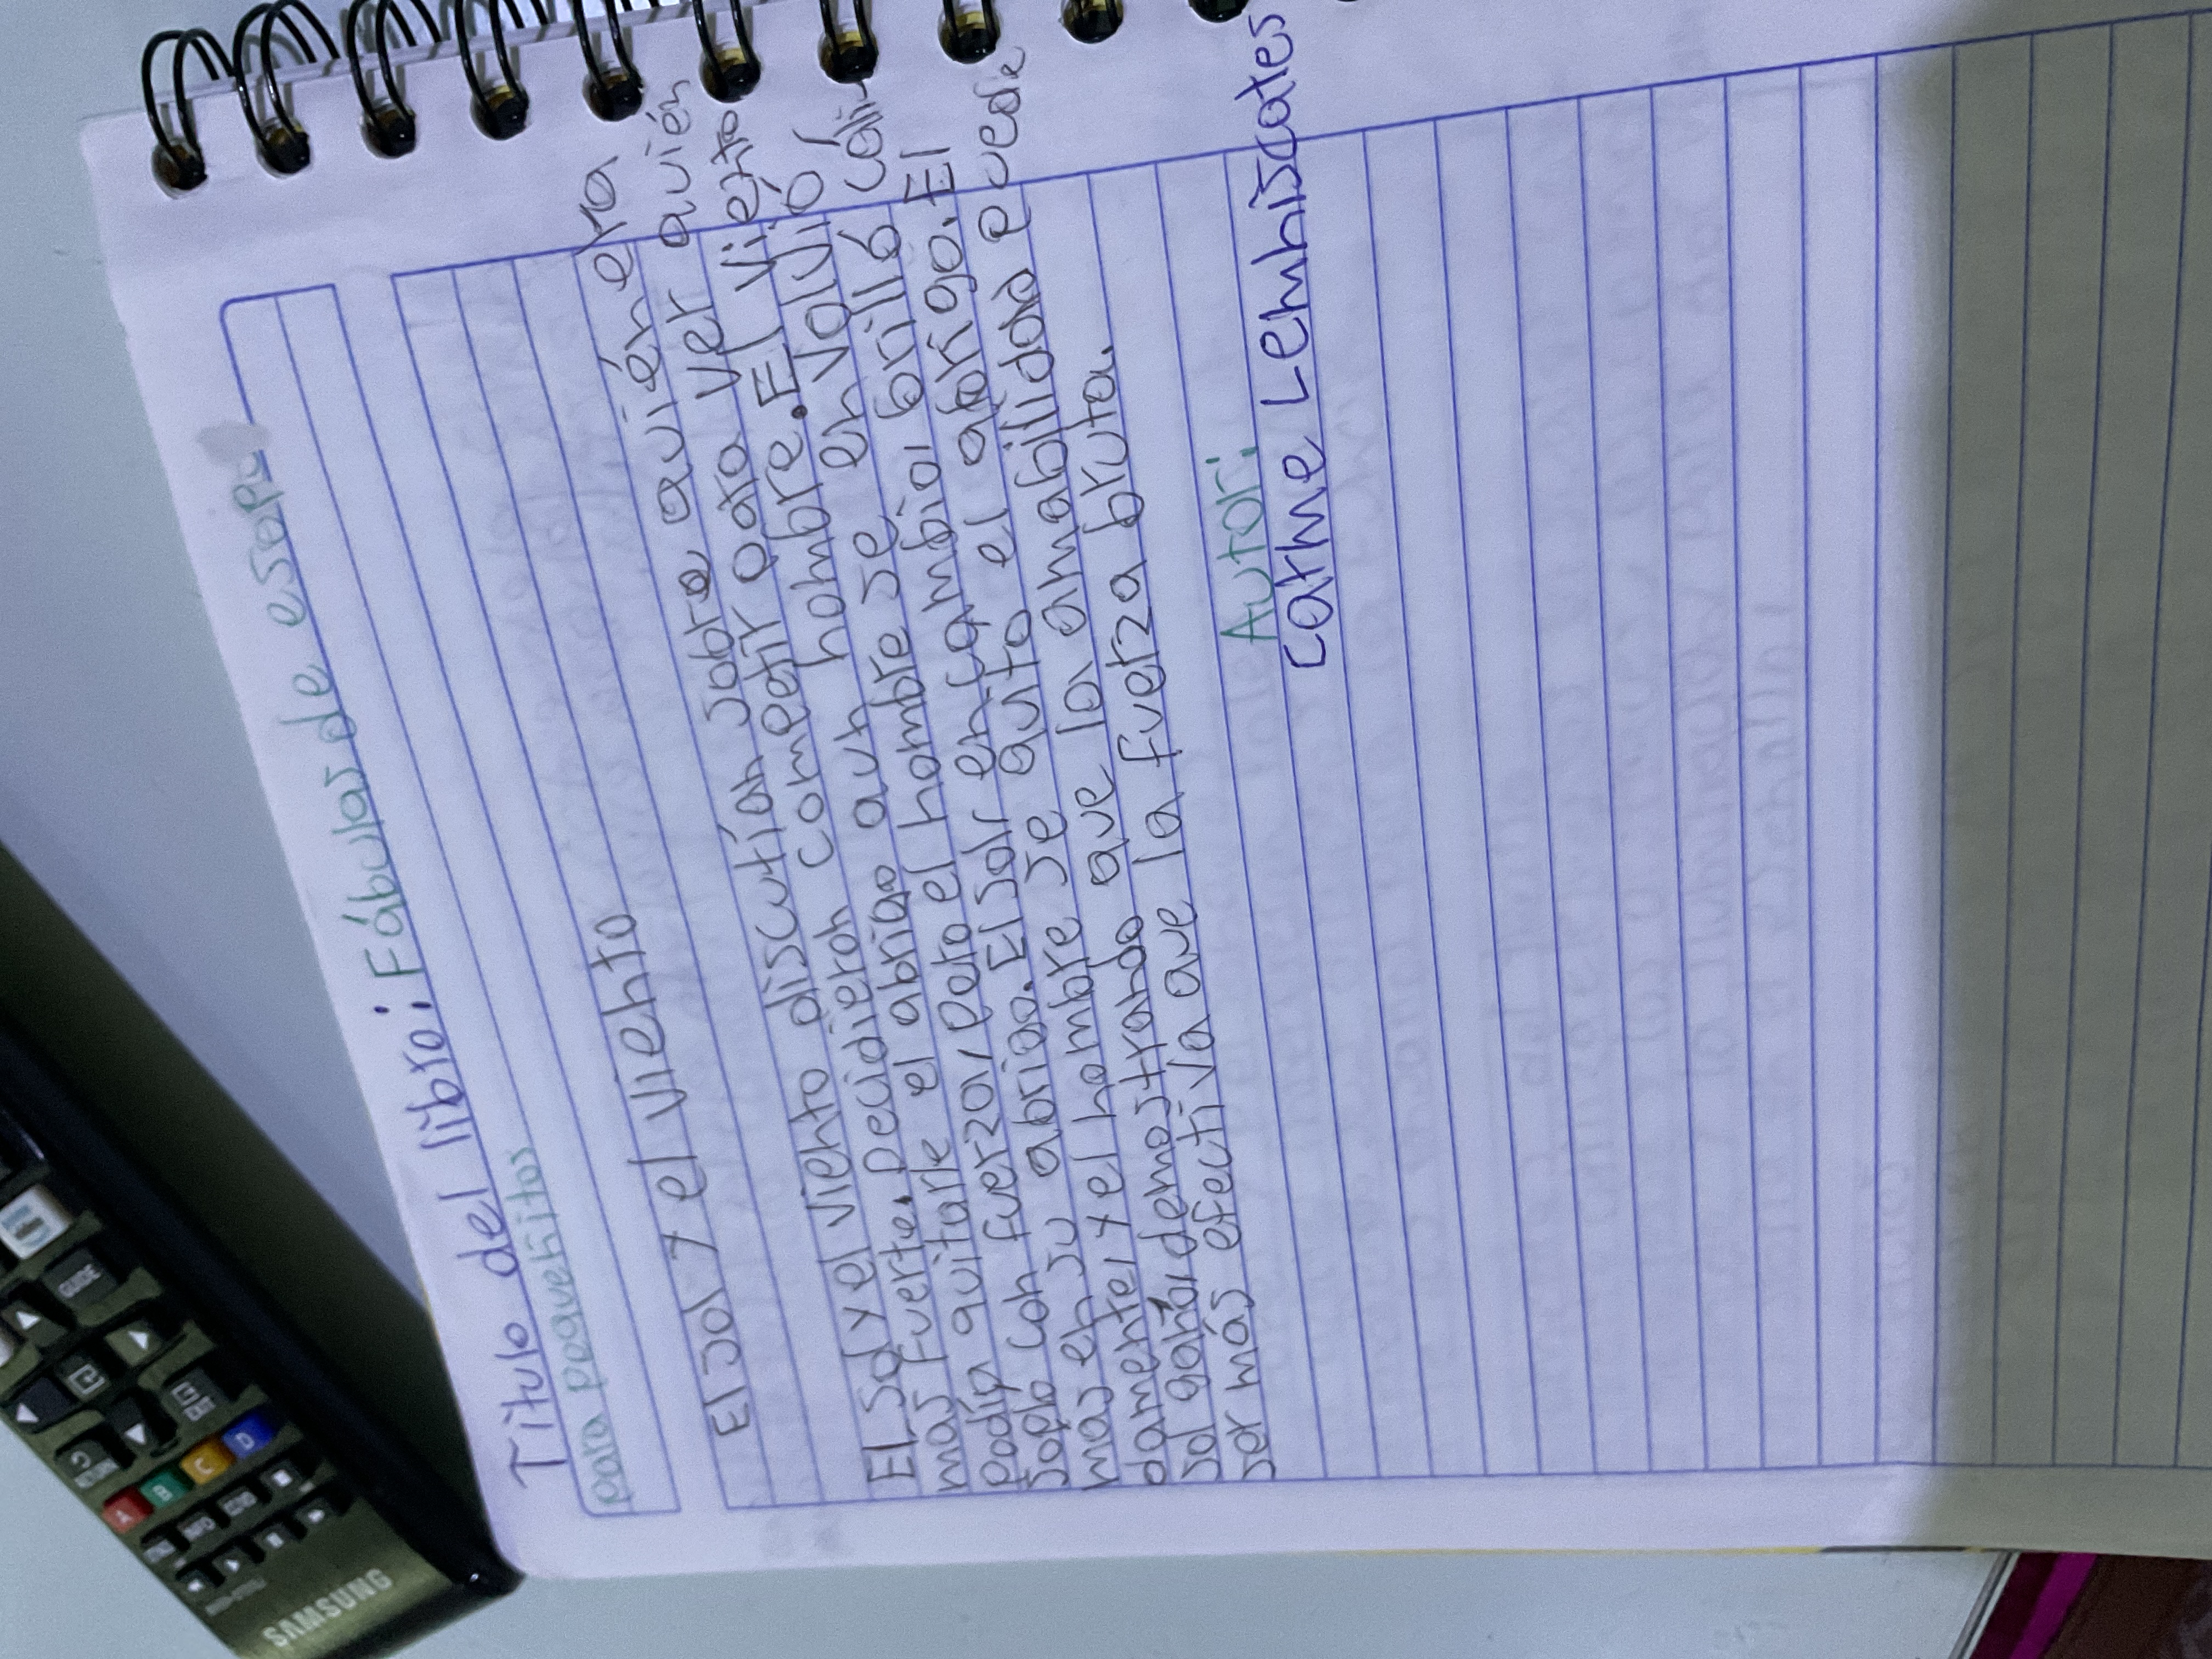 Título del libro: Fábulas de esopo
para pequeñitos
El sol y el viento
El sol y el viento discutían sobre quién era
mas fuerte. Decidieron competir para ver quién
podía quitarle el abrigo aun hombre. El viento
soplo con fuerza, pero el hombre se envolvió
mas en su abrigo. El sol en cambio, brilló
y el hombre se quito el abrigo. El
sol ganó, demostrando que la amabilidad puede
ser más efectiva que la fuerza bruta.
Autor:
Carme Lemniscates
SAMSUNG
GUIDE
RETURN
EXIT
A
B
C
D